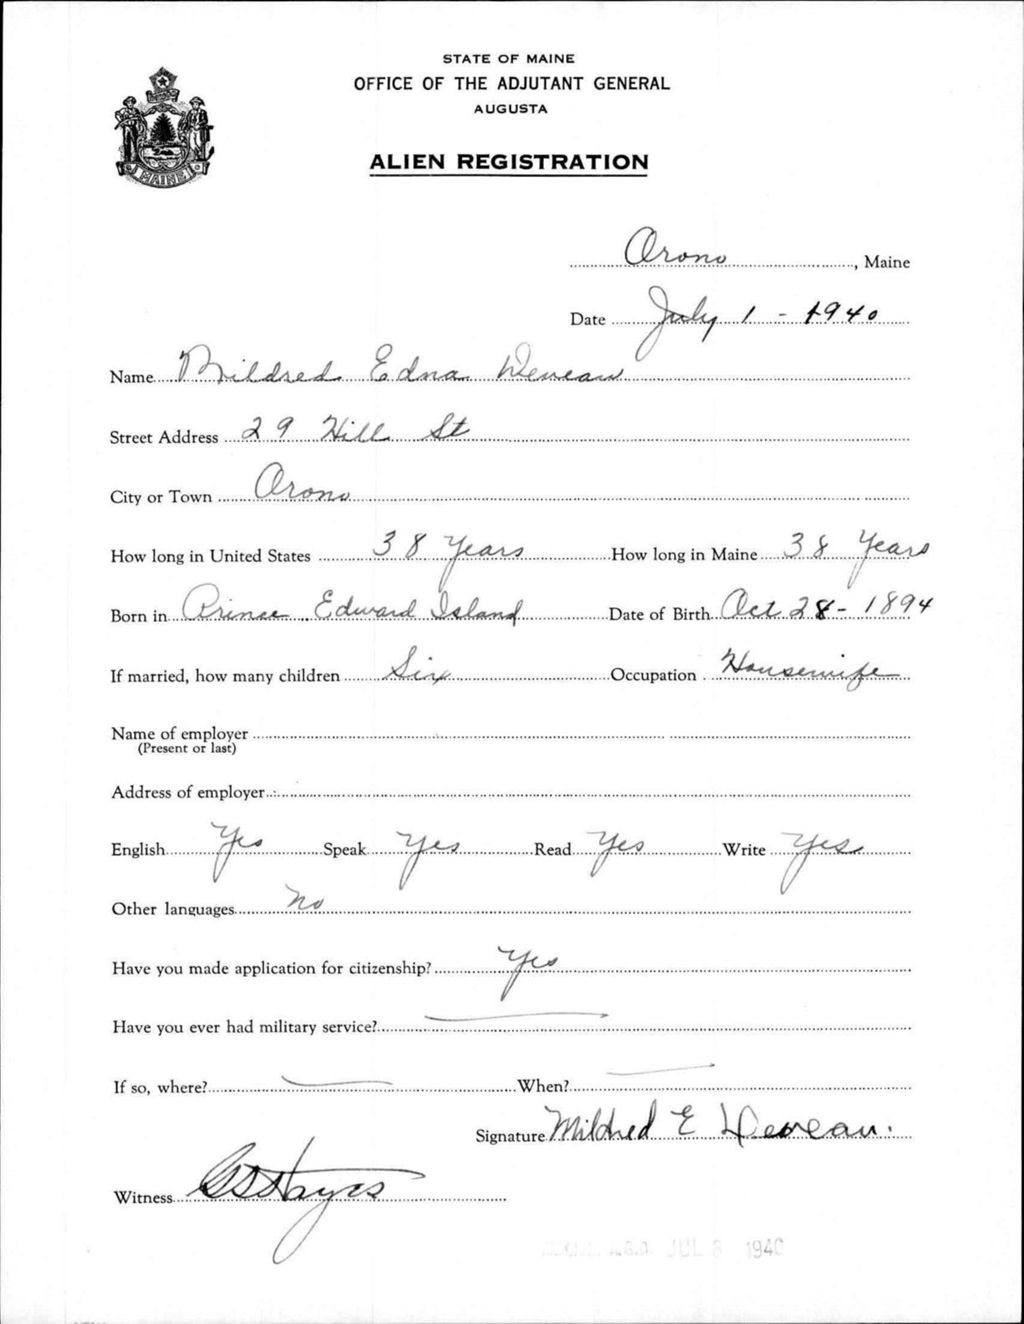 STATE OF MAINE
OFFICE OF THE ADJUTANT GENERAL
AUGUSTA
ALIEN REGISTRATION
MAINE
Orono, Maine
Date July 1 - 1940
Name Mildred Edna Deveau
Street Address 29 Hill St
City or Town Orono
How long in United States 38 Years How long in Maine 38 Years
Born in Prince Edward Island Date of Birth Oct 28 - 1894
If married, how many children Six Occupation Housewife
Name of employer
(Present or last)
Address of employer
English Yes Speak Yes Read Yes Write Yes
Other languages No
Have you made application for citizenship? Yes
Have you ever had military service?
If so, where? When?
Signature Mildred E Deveau.
Witness Hayes
A.G.O. JUL 1940